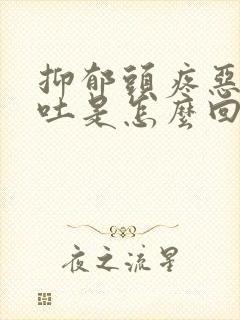 抑郁頭疼惡
吐是怎麼回
夜之流星